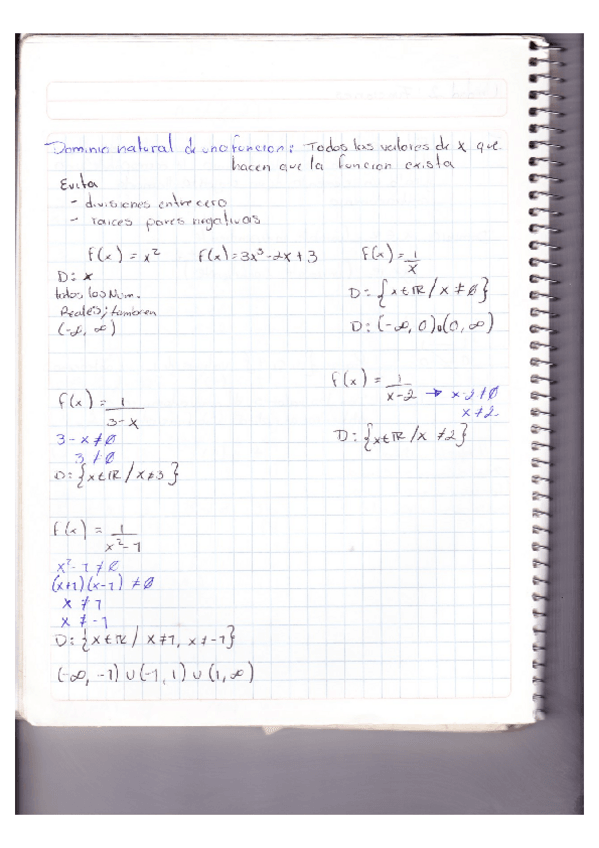 Dominio natural de una función: Todos los valores de x que
hacen que la función exista
Evita
- divisiones entre cero
- raices pares negativas
f(x) = x² f(x) = 3x³-2x+3 f(x) = 1/x
D: x
todos los Num.
Reales; tambien
(-∞, ∞)
D: {x∈ℝ / x ≠ 0}
D: (-∞, 0)∪(0, ∞)
f(x) = 1/(x-2) → x-2≠0
x≠2
D: {x∈ℝ / x ≠2}
f(x) = 1/(3-x)
3-x≠0
3 ≠0
D: {x∈ℝ / x≠3}
f(x) = 1/(x²-1)
x²-1 ≠0
(x+1)(x-1) ≠0
x ≠ 1
x ≠ -1
D: {x∈ℝ / x≠1, x≠-1}
(-∞, -1) ∪ (-1, 1) ∪ (1, ∞)